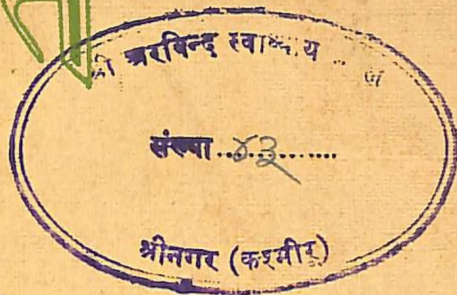 श्री अरविन्द स्वाध्याय
संख्या ४३
श्रीनगर (कश्मीर)